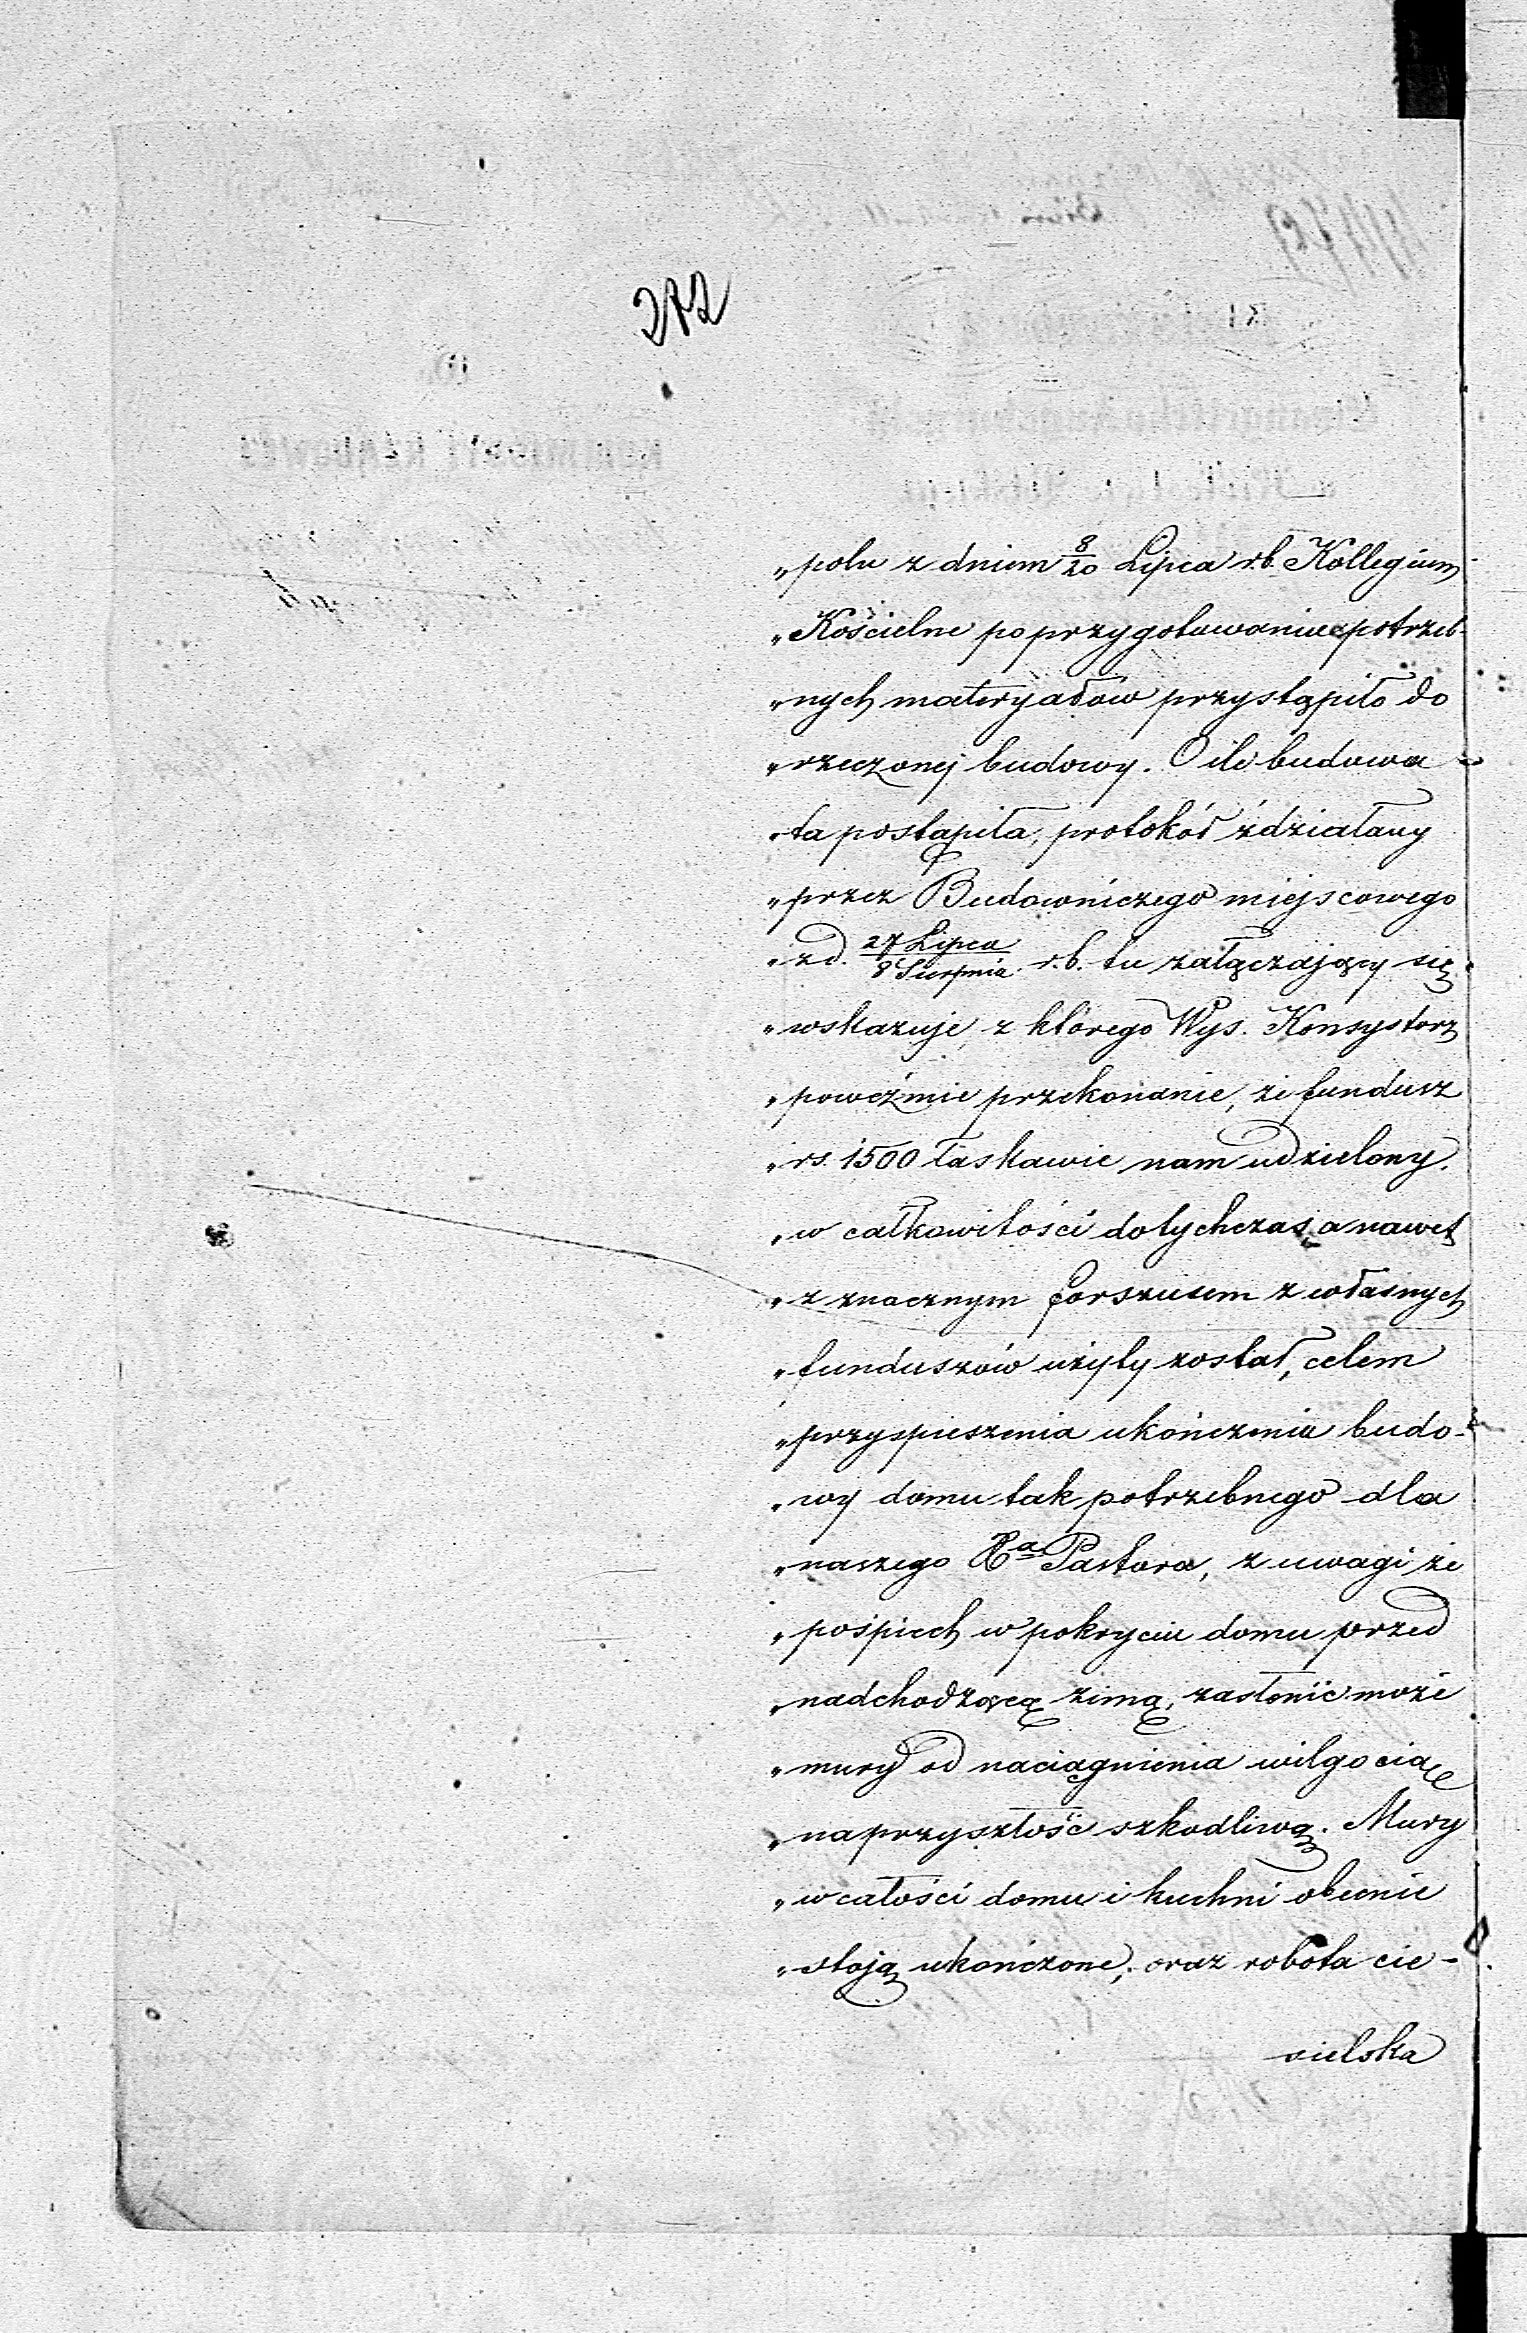 272
„polu z dniem 8/20 Lipca r.b. Kollegium
„Kościelne po przygotowaniu potrzeb-
„nych materyałów przystąpiło do
„rzeczonej budowy. O ile budowa
„ta postąpiła, protokół zdziałany
„przez Budowniczego miejscowego
„z d. 27 Lipca/8 Sierpnia r.b. tu załączający się
„wskazuje, z którego Wys. Konsystorz
„poweźmie przekonanie, że fundusz
„rs. 1500 łaskawie nam udzielony,
„w całkowitości dotychczas, a nawet
„z znacznym forszusem z własnych
„funduszów użyty został, celem
„przyspieszenia ukończenia budo-
„wy domu tak potrzebnego dla
„naszego Xa Pastora, z uwagi że
„pośpiech w pokryciu domu przed
„nadchodzącą zimą, zasłonić może
„mury od naciągnienia wilgocią
„na przyszłość szkodliwą. Mury
„w całości domu i kuchni obecnie
„stoją ukończone, oraz robota cie-
sielska